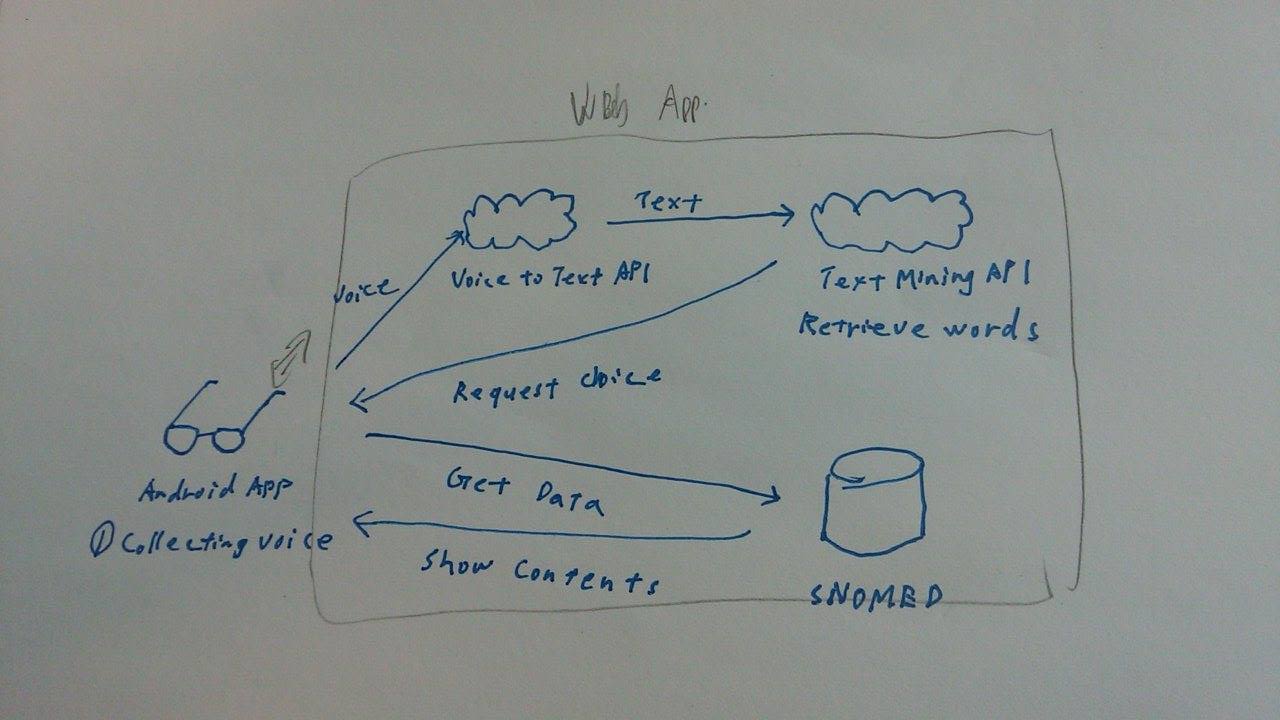 Web App.
Text
Voice
Voice to Text API
Text Mining API
Retrieve words
Request choice
Android App
Get Data
① Collecting voice
Show Contents
SNOMED